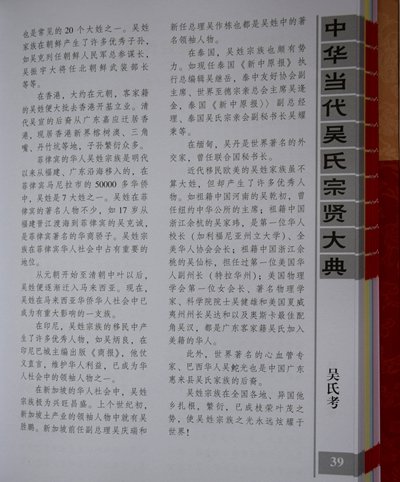 也是常见的20个大姓之一。吴姓
家族在朝鲜产生了许多优秀子孙,
如吴克列任朝鲜人民军总参谋长,
吴振宇大将任北朝鲜武装部长
等等。
在香港,大约在元朝,客家籍
的吴姓便大批去香港开基立业。清
代吴宣的后裔从广东嘉应迁居香
港,现居香港新界榕树澳、三角
嘴、丹竹坑等地,子孙繁衍众多。
菲律宾的华人吴姓宗族是明代
以来从福建、广东沿海移入的,在
菲律宾马尼拉市的50000多华侨
中,吴姓是7大姓之一。吴姓在菲
律宾的著名人物不少,如17岁从
福建晋江渡海到菲律宾的吴克诚,
是菲律宾著名的华商骄子。吴姓宗
族在菲律宾华人社会中占有重要的
地位。
从元朝开始至清朝中叶以后,
吴姓便逐渐迁入马来西亚。现在,
吴姓在马来西亚华侨华人社会中已
成为有重大影响的一支族。
在印尼,吴姓宗族的移民中产
生了许多优秀人物,如吴炳良,在
印尼巴城主编出版《商报》,他仗
义直言,维护华人利益,已成为华
人社会中的领袖人物之一。
在新加坡的华人社会中,吴姓
宗族极为兴旺昌盛。上个世纪初,
新加坡土产业的领袖人物中就有吴
胜鹏。新加坡前任副总理吴庆瑞和
新任总理吴作栋也都是吴姓中的著
名领袖人物。
在泰国,吴姓宗族也颇有势
力。如现任泰国《新中原报》执
行总编辑吴继岳,泰中友好协会副
主席、世界至德宗亲总会主席吴逢
金,泰国《新中原报》副总经
理、泰国吴氏宗亲会副秘书长吴耀
秉等。
在缅甸,吴丹是世界著名的外
交家,曾任联合国秘书长。
近代移民欧美的吴姓家族虽不
算大姓,但却产生了许多优秀人
物。如祖籍中国河南的吴乾初,曾
任纽约中华公所的主席;祖籍中国
浙江余杭的吴家玮,是第一位华人
校长(加利福尼亚州立大学)、全
美华人协会会长;祖籍中国浙江余
杭的吴仙标,担任过第一位美国华
人副州长(特拉华州);美国物理
学会第一位女会长、著名物理学
家、科学院院士吴健雄和美国夏威
夷州州长吴达和以及奥斯卡最佳配
角吴汉,都是广东客家籍吴氏加入
美籍的华人。
此外,世界著名的心血管专
家、巴西华人吴鮀光也是中国广东
惠来县吴氏家族的后裔。
吴姓宗族在全国各地、异国他
乡扎根,繁衍,已成枝荣叶茂之
势,使吴姓宗族之光永远炫耀于
世界!
中华当代吴氏宗贤大典
吴氏考
39